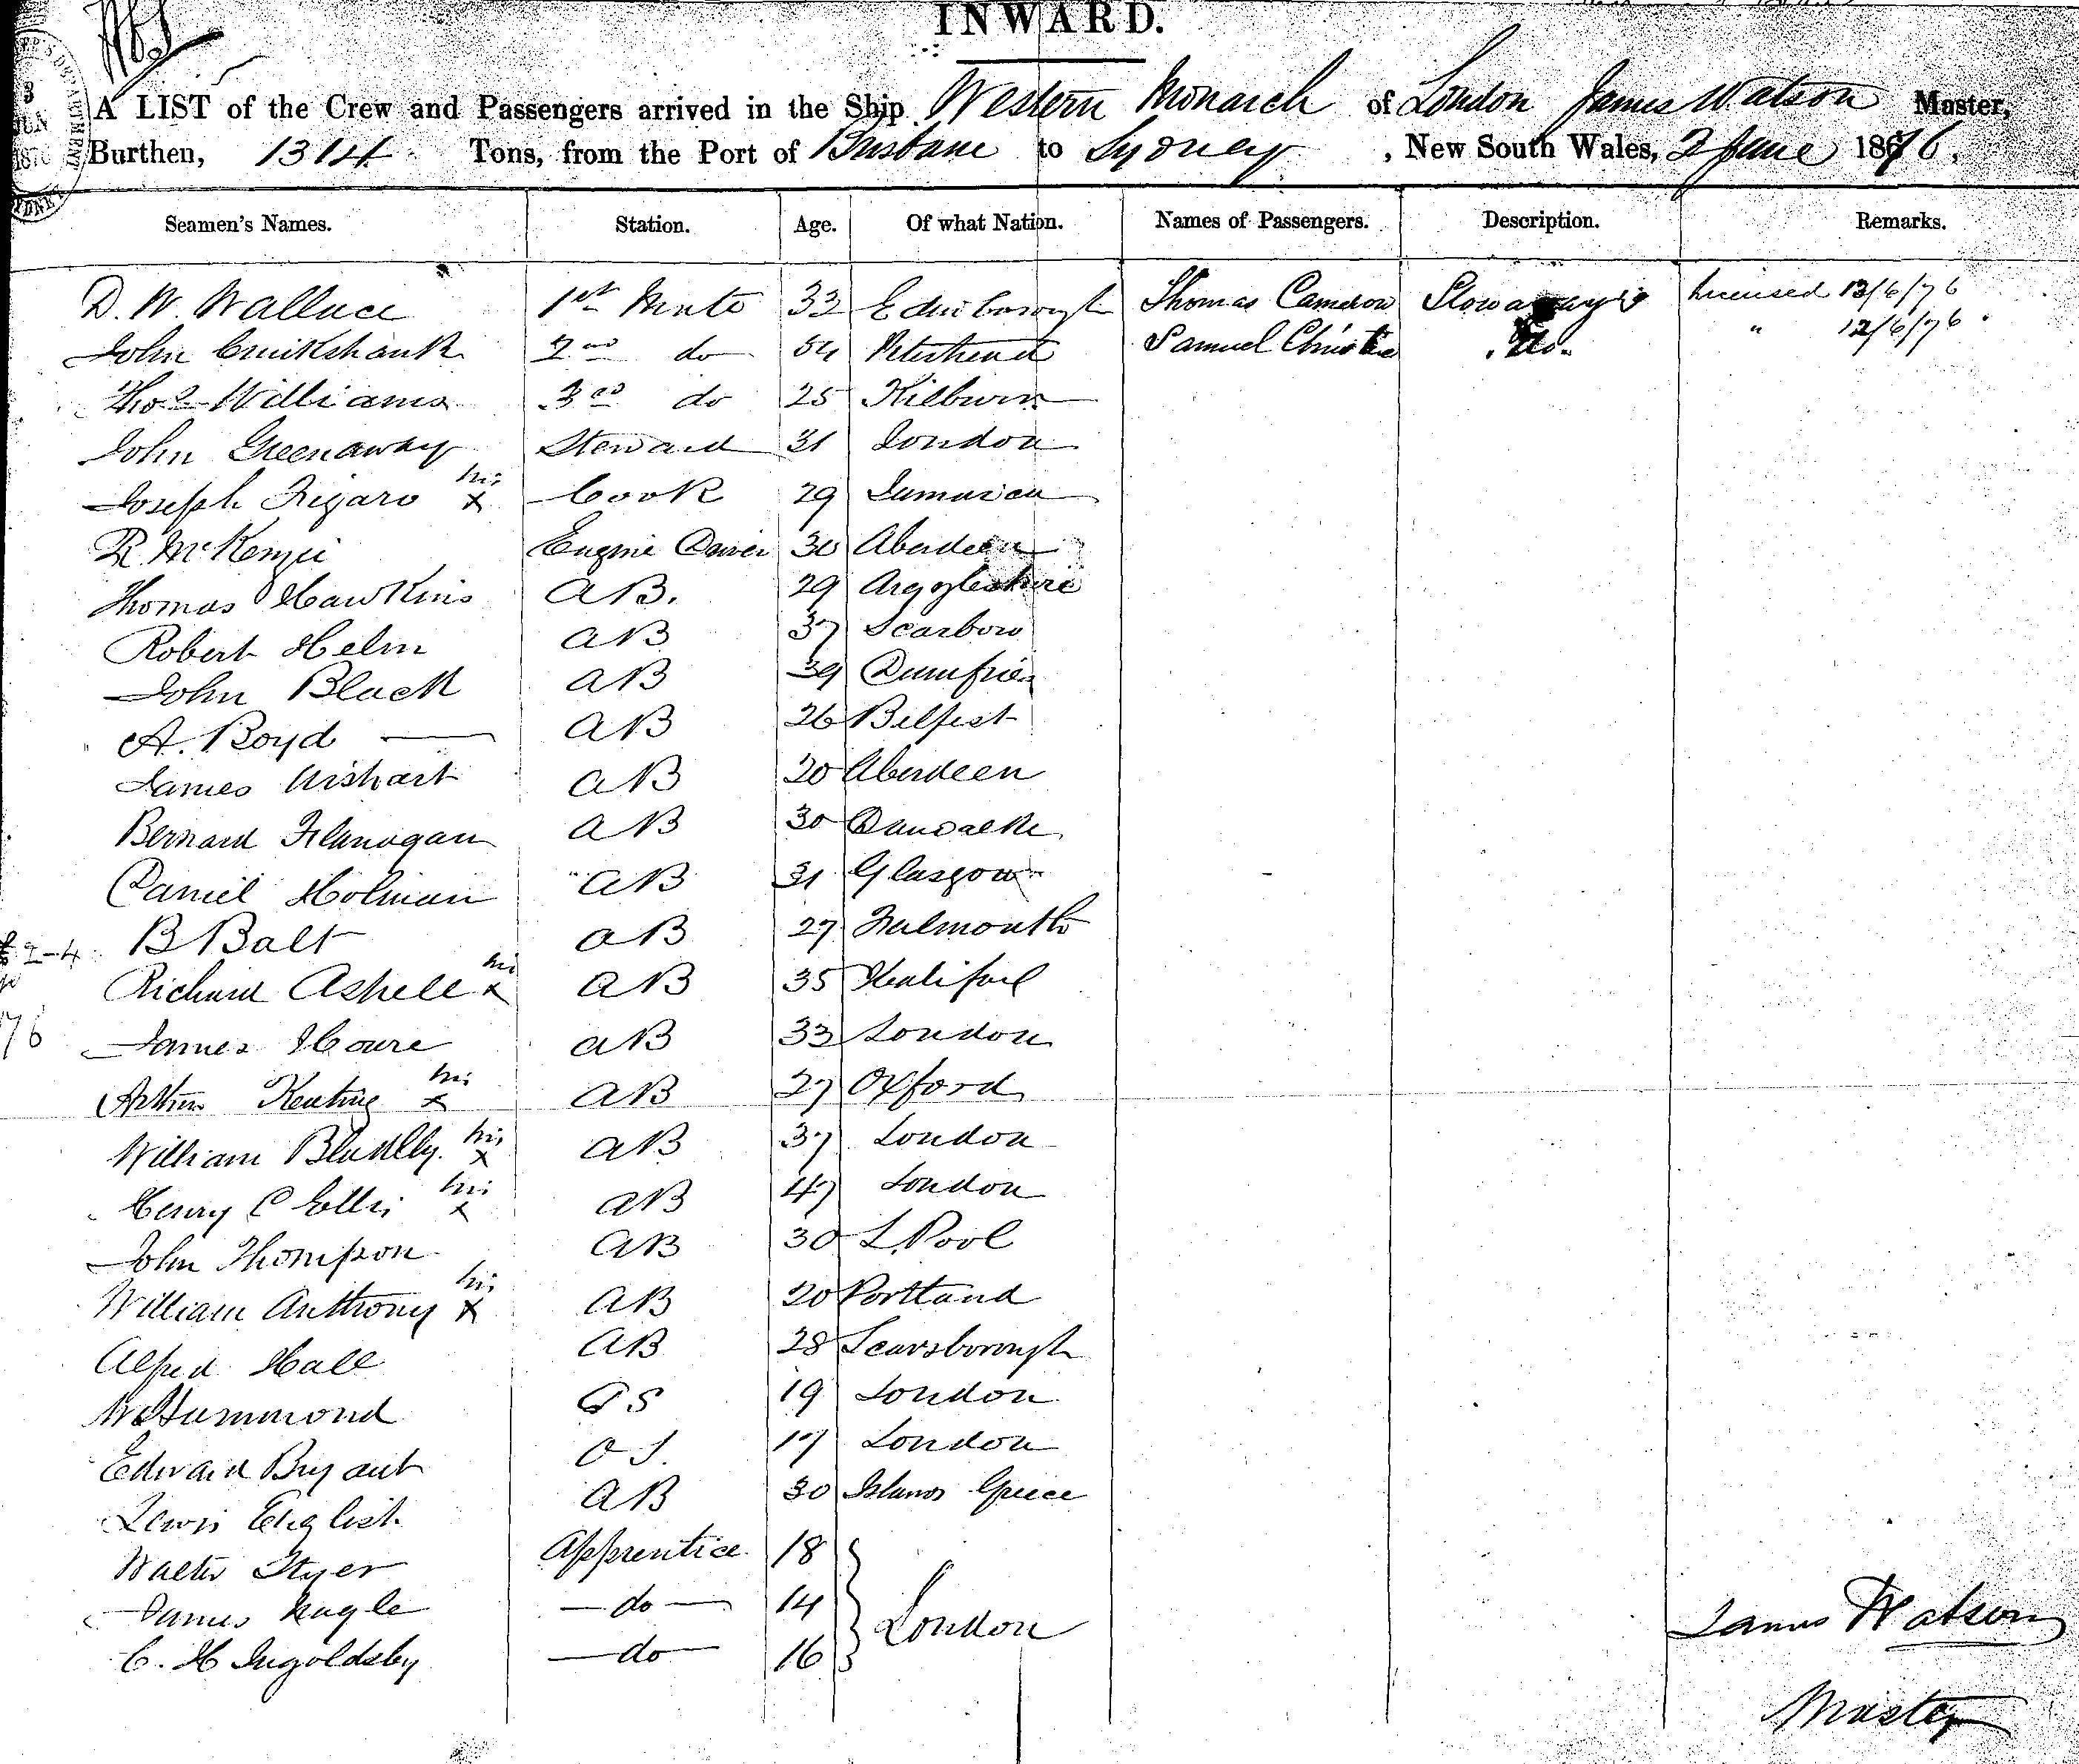 INWARD.
A LIST of the Crew and Passengers arrived in the Ship Western Monarch of London James Watson Master,
Burthen, 1314 Tons, from the Port of Brisbane to Sydney, New South Wales, 2 June 1876.
Seamen's Names. Station. Age. Of what Nation. Names of Passengers. Description. Remarks.
D. W. Wallace 1st Mate 33 Edinborough Thomas Cameron Stowaways 12/6/76
John Cruikshank 2nd do 54 Peterhead Samuel Christie do. " 12/6/76
Thos Williams 3rd do 25 Kilburn
John Greenaway Steward 31 London
Joseph Figaro his x Cook 29 Jamaica
R McKenzie Engine Driver 30 Aberdeen
Thomas Hawkins AB. 29 Argyleshire
Robert Helm AB 37 Scarboro
John Black AB 39 Dumfries
A. Boyd AB 26 Belfast
James Wishart AB 20 Aberdeen
Bernard Flanagan AB 30 Dundalk
Daniel Holman AB 31 Glasgow
B Balt AB 27 Falmouth
Richard Ashell his x AB 35 Halifax
James Hoare AB 33 London
76
Arthur Keating his x AB 27 Oxford
William his x AB 37 London
Henry C Ellis his x AB 47 London
John Thompson AB 30 L.Pool
William Anthony his x AB 20 Portland
Alfred Hall AB 28 Scarsborough
W Hammond OS 19 London
Edward Bryant OS. 17 London
Lewis English AB 30 Islands Greece
Walter Styer Apprentice 18
James Nagle do 14 London
C. H Ingoldsby do 16
James Watson
Master